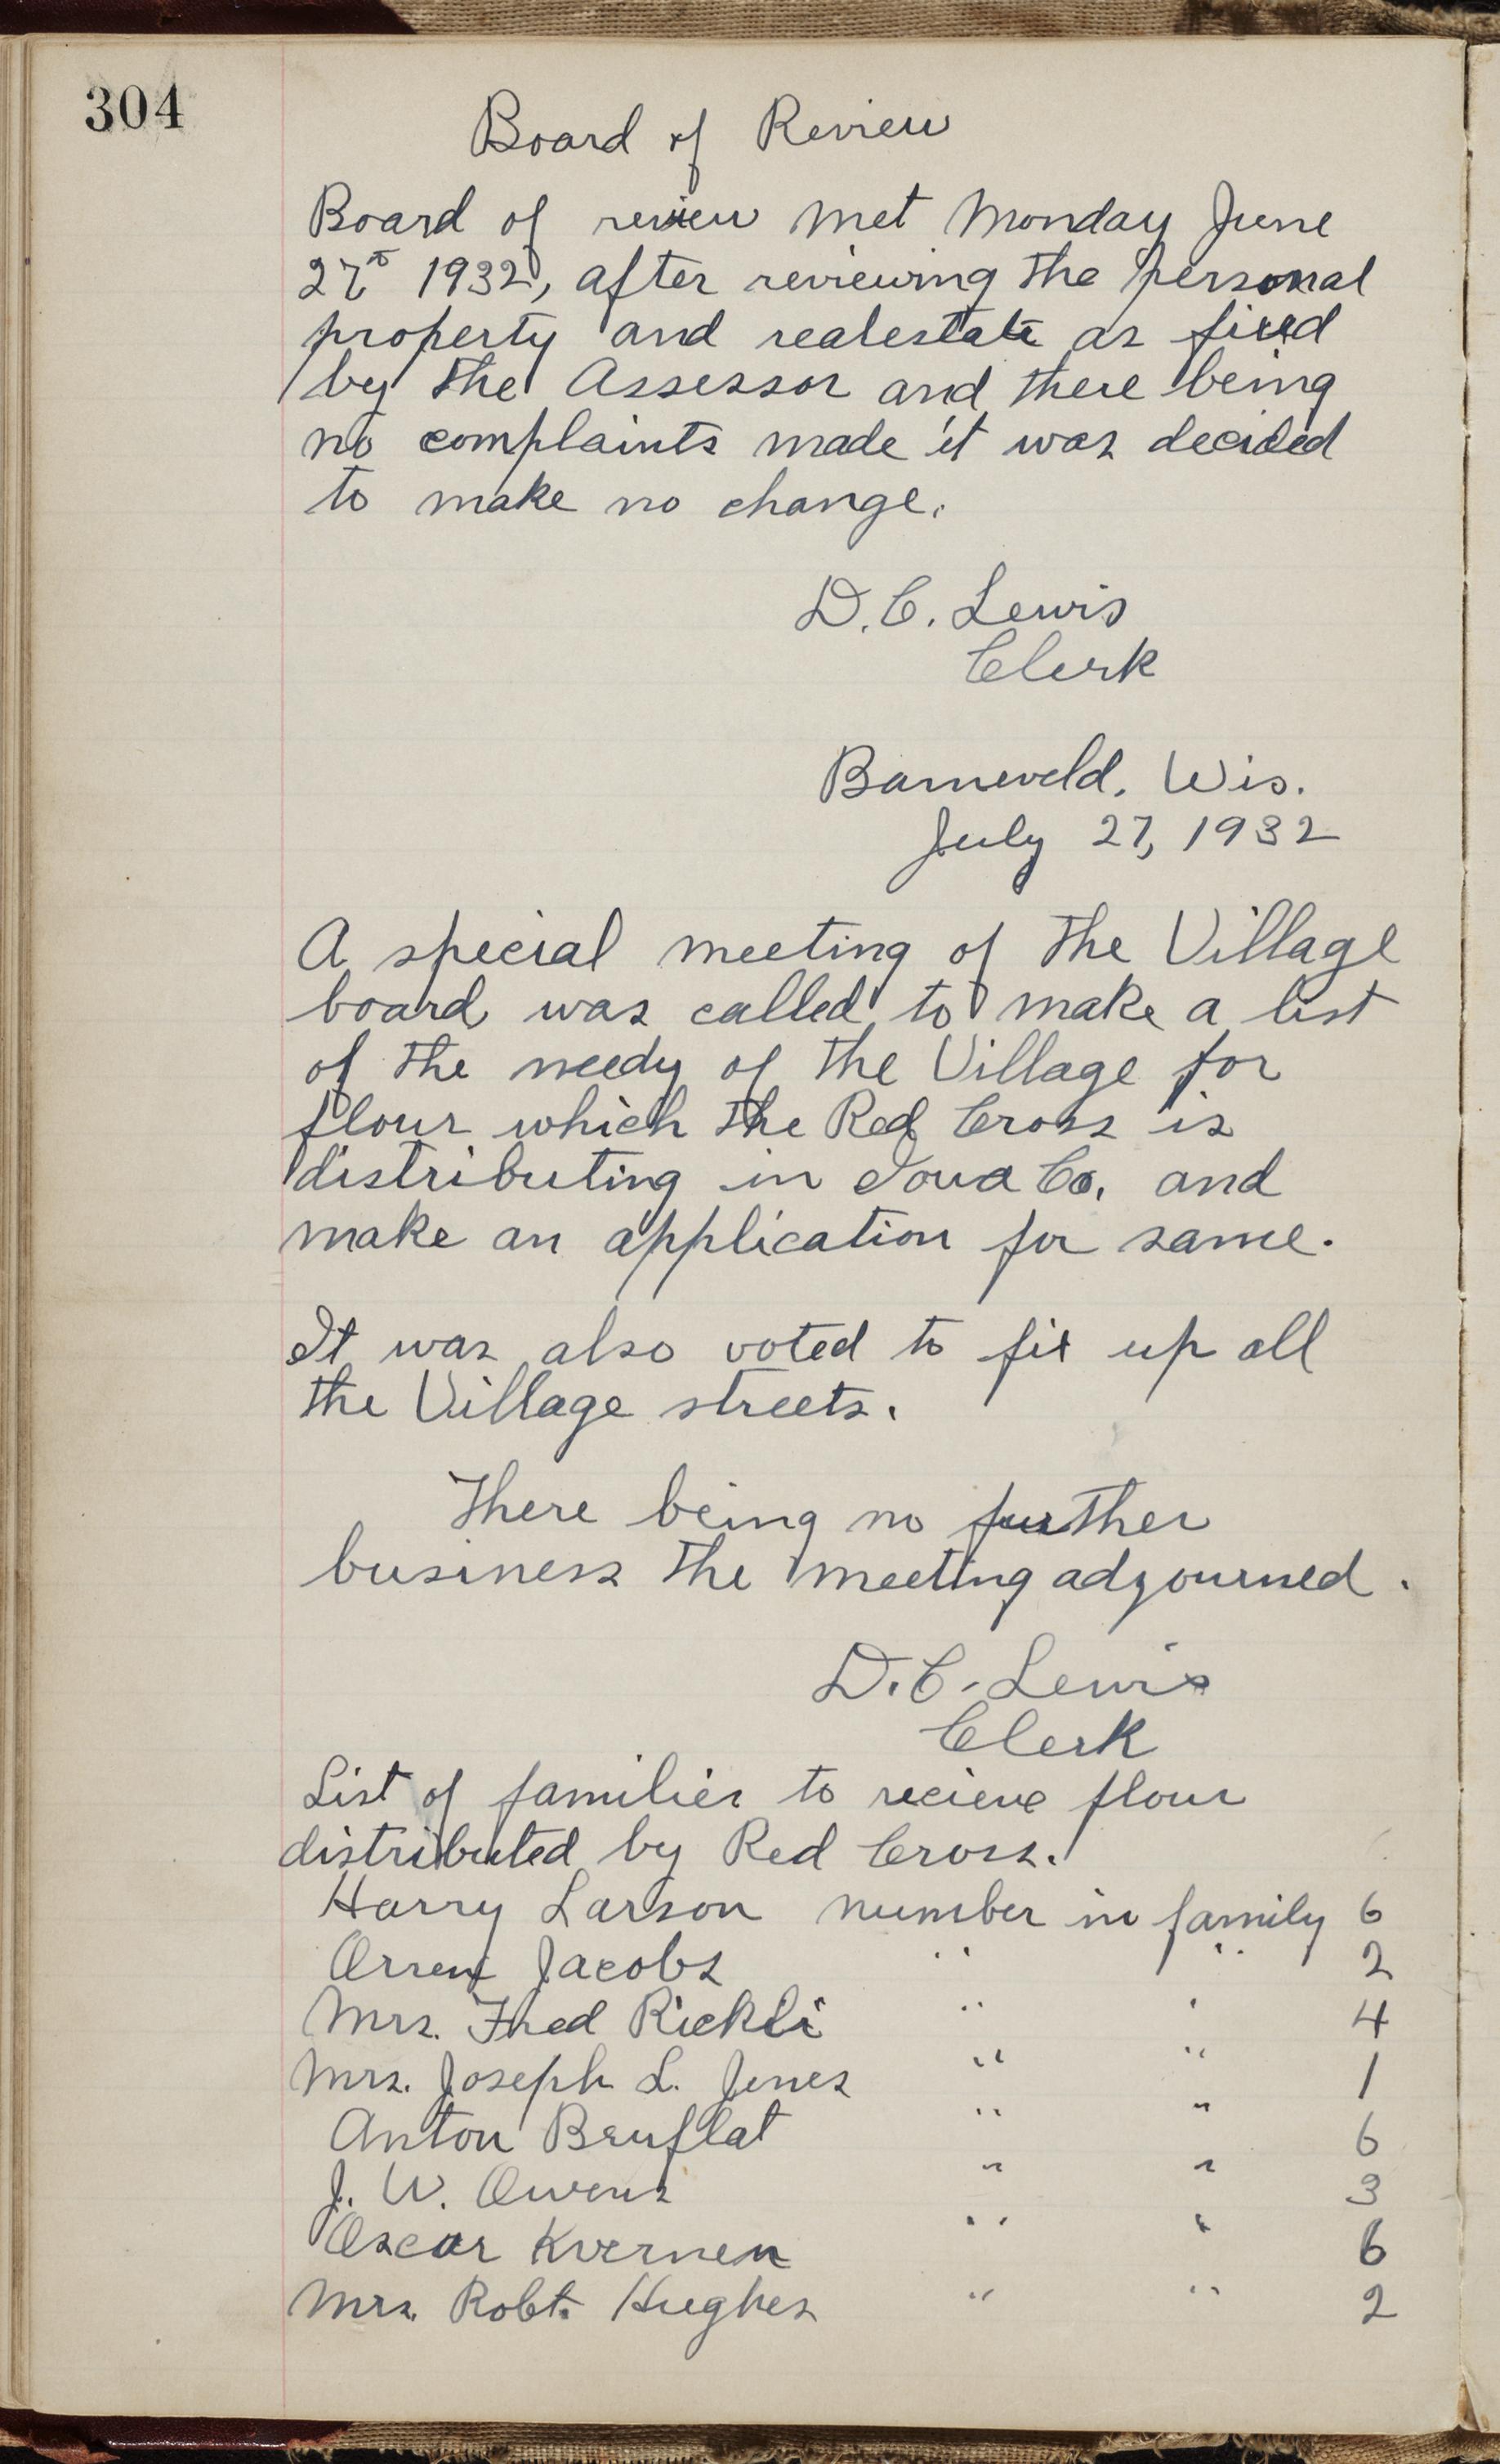 304
Board of Review
Board of review met Monday June
27th 1932, after reviewing the personal
property and realestate as fixed
by the Assessor and there being
no complaints made it was decided
to make no change.
D. C. Lewis
Clerk
Barneveld, Wis.
July 27, 1932
A special meeting of the Village
board was called to make a list
of the needy of the Village for
flour which the Red Cross is
distributing in Iowa Co. and
make an application for same.
It was also voted to fix up all
the Village streets.
There being no further
business the meeting adjourned.
D. C. Lewis
Clerk
List of families to recieve flour
distributed by Red Cross.
Harry Larson number in family 6
Orren Jacobs " " 2
Mrs. Fred Rickli " " 4
Mrs. Joseph L. Jones " " 1
Anton Bruflat " " 6
J. W. Owens " " 3
Oscar Kvernen " " 6
Mrs. Robt. Hughes " " 2